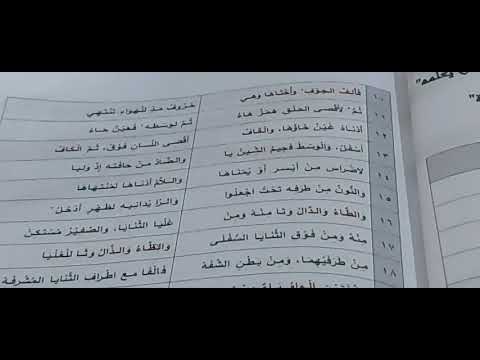 ١٠ فَأَلِفُ الجَوْفِ وَأُخْتَاهَا وَهِي حُرُوفُ مَدٍّ لِلْهَوَاءِ تَنْتَهِي
١١ ثُمَّ لِأَقْصَى الحَلْقِ هَمْزٌ هَاءُ ثُمَّ لِوَسْطِهِ فَعَيْنٌ حَاءُ
أَدْنَاهُ غَيْنٌ خَاؤُهَا، وَالقَافُ أَقْصَى اللِّسَانِ فَوْقُ، ثُمَّ الكَافُ
١٣ أَسْفَلُ، وَالوَسْطُ فَجِيمُ الشِّينُ يَا وَالضَّادُ مِنْ حَافَتِهِ إِذْ وَلِيَا
١٤ لاضْرَاسَ مِنْ أَيْسَرَ أَوْ يُمْنَاهَا وَاللَّامُ أَدْنَاهَا لِمُنْتَهَاهَا
١٥ وَالنُّونُ مِنْ طَرَفِهِ تَحْتُ اجْعَلُوا وَالرَّا يُدَانِيهِ لِظَهْرٍ أَدْخَلُ
وَالطَّاءُ وَالدَّالُ وَتَا مِنْهُ وَمِنْ عُلْيَا الثَّنَايَا، وَالصَّفِيرُ مُسْتَكِنْ
١٧ مِنْهُ وَمِنْ فَوْقِ الثَّنَايَا السُّفْلَى وَالظَّاءُ وَالذَّالُ وَثَا لِلْعُلْيَا
١٨ مِنْ طَرَفَيْهِمَا، وَمِنْ بَطْنِ الشَّفَهْ فَالْفَا مَعَ اطْرَافِ الثَّنَايَا المُشْرِفَهْ